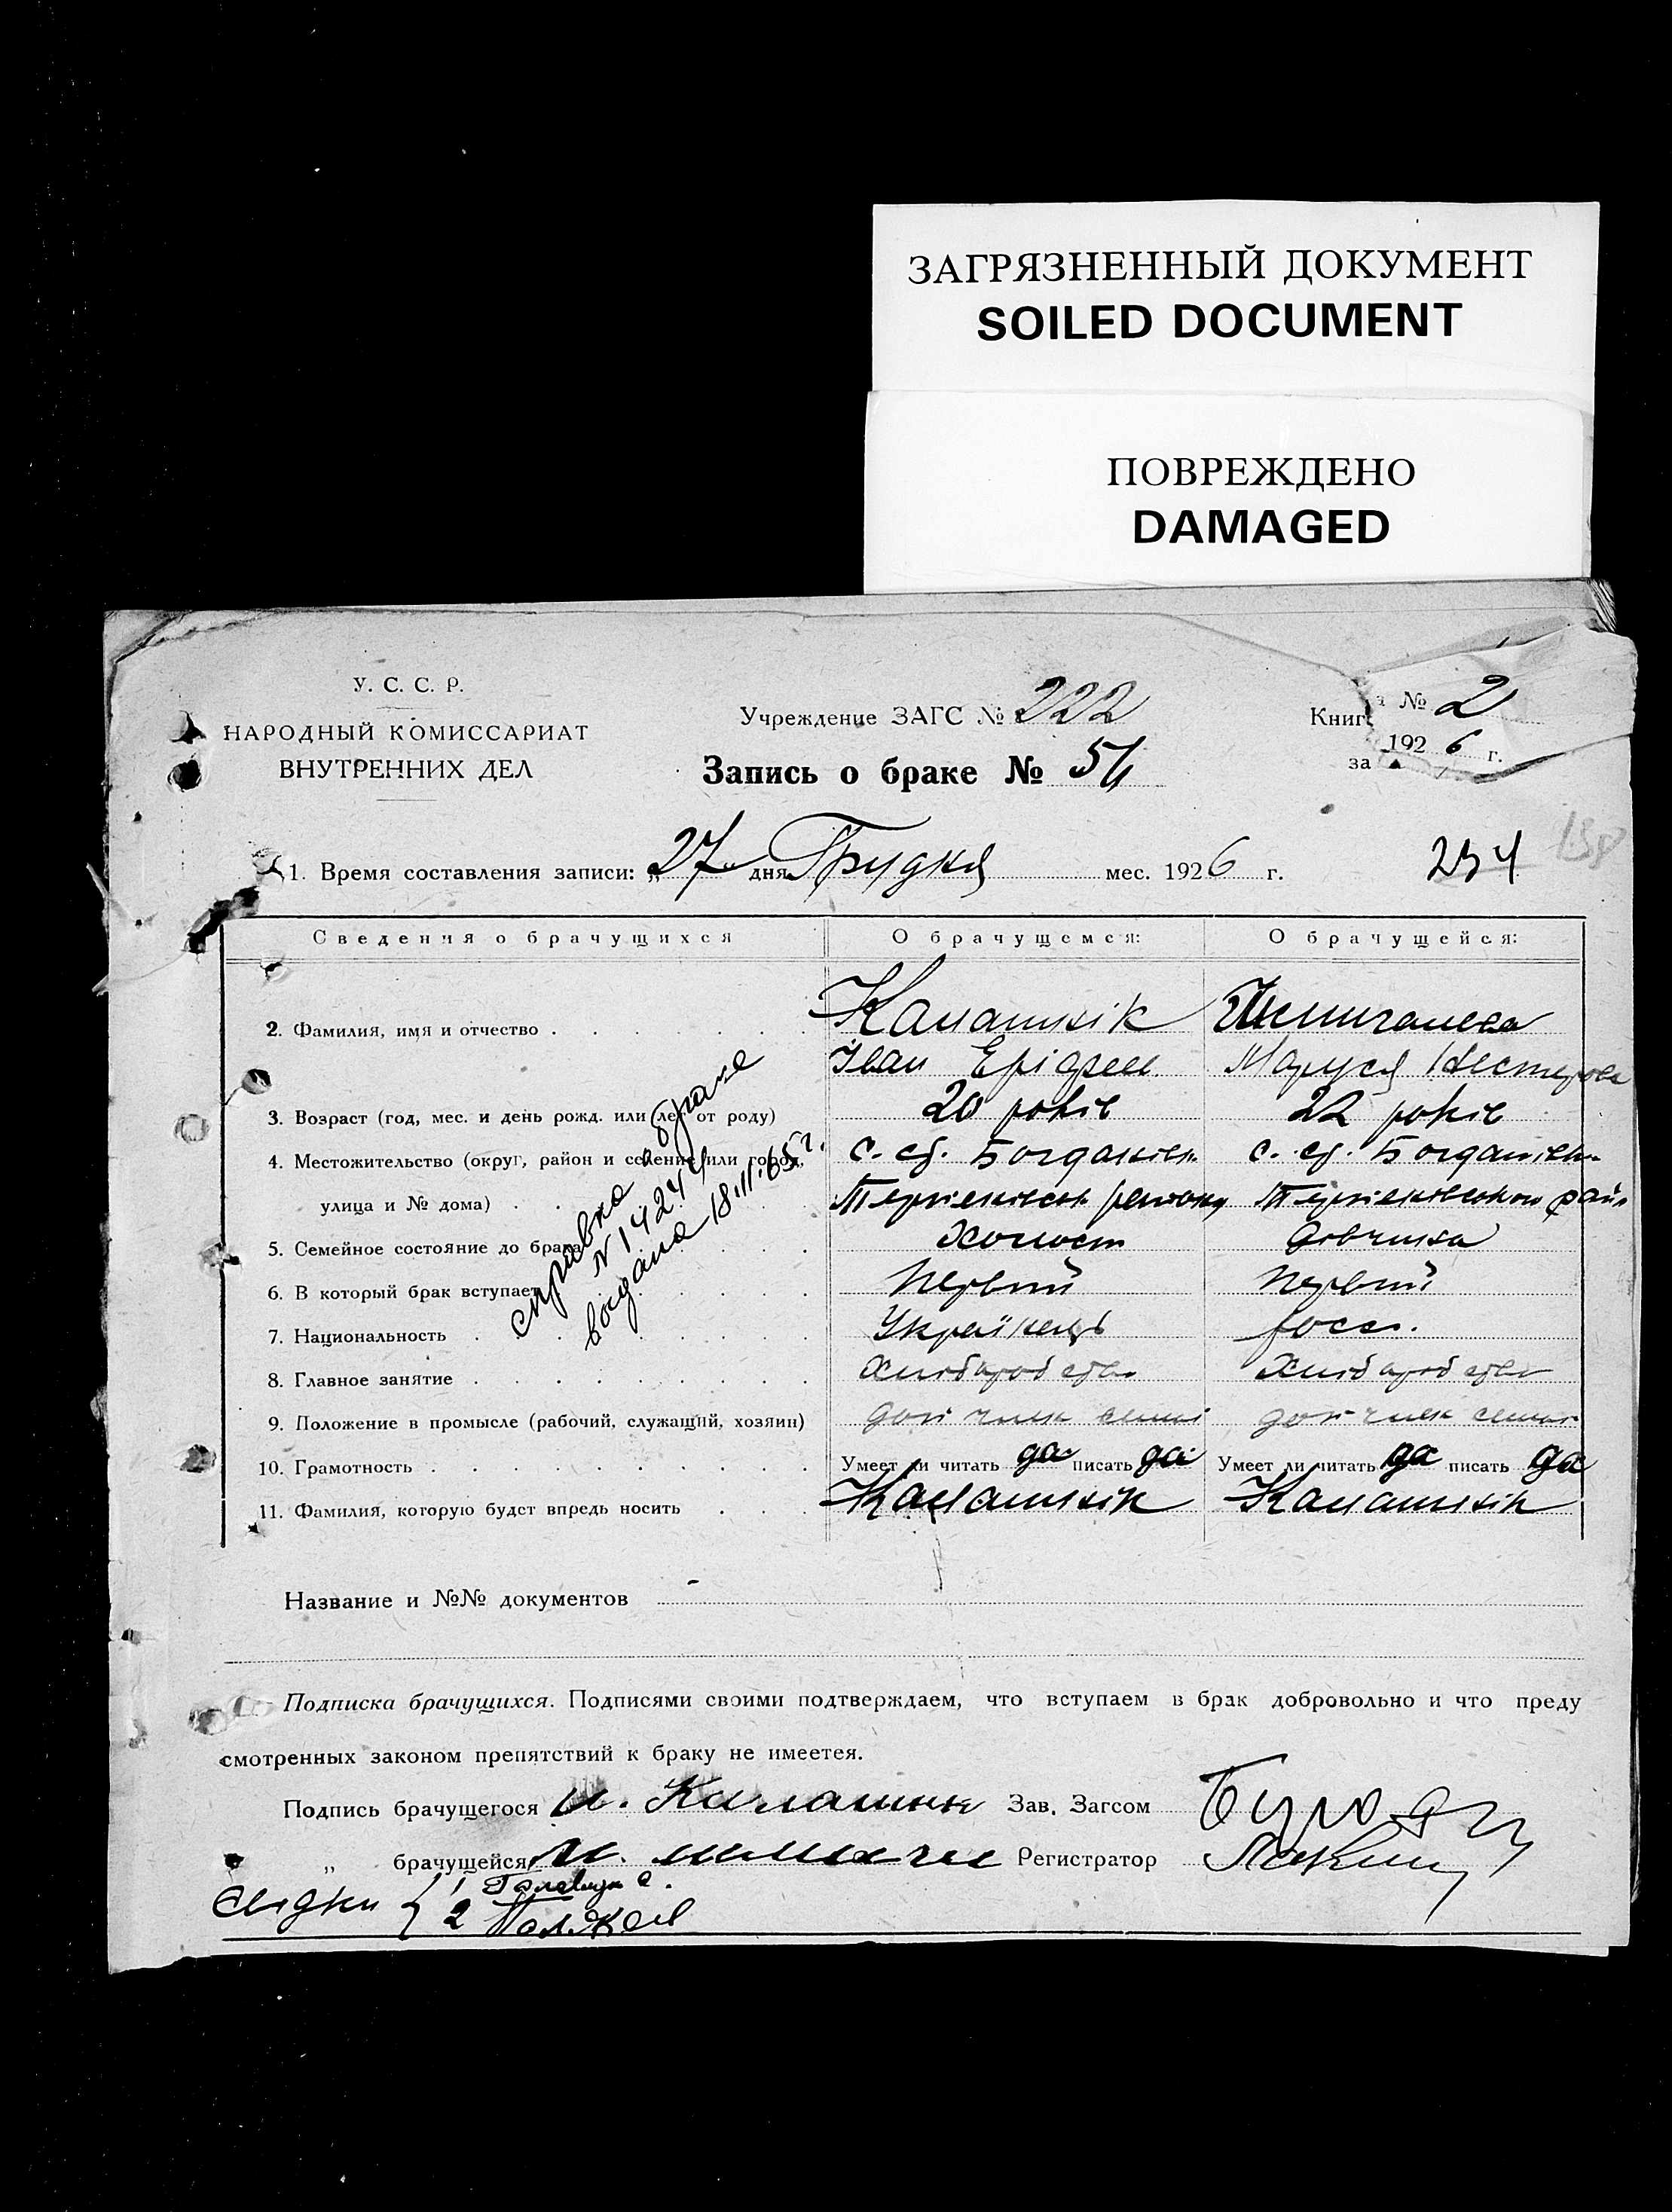 ЗАГРЯЗНЕННЫЙ ДОКУМЕНТ
SOILED DOCUMENT
ПОВРЕЖДЕНО
DAMAGED
У. С. С. Р.
НАРОДНЫЙ КОМИССАРИАТ
ВНУТРЕННИХ ДЕЛ
Учреждение ЗАГС № 222
Запись о браке № 54
Книг а № 2
за 1926 г.
1. Время составления записи: „27“ дня Грудня мес. 1926 г.
234
138
Сведения о брачущихся
О брачущемся:
О брачущейся:
2. Фамилия, имя и отчество
Калашнік
Іван
Маруся Нестерова
3. Возраст (год, мес. и день рожд. или лет от роду)
20 років
22 років
4. Местожительство (округ, район и селение или город,
с. Богданівк
с. Богданівк
улица и № дома)
5. Семейное состояние до брака
Холост
Дівчина
6. В который брак вступает
Первий
Первий
7. Национальность
Українець
росс.
8. Главное занятие
Хлібороб
Хлібороб
9. Положение в промысле (рабочий, служащий, хозяин)
член семьї
член семьї
10. Грамотность
Умеет ли читать да писать да
Умеет ли читать да писать да
11. Фамилия, которую будет впредь носить
Калашнік
Калашнік
справка о браке
№ 14244
18.11.65 г.
Название и №№ документов -
Подписка брачущихся. Подписями своими подтверждаем, что вступаем в брак добровольно и что преду
смотренных законом препятствий к браку не имеется.
Подпись брачущегося И. Калашник
Зав. Загсом
„ брачущейся
Регистратор
Свідки { 1
2